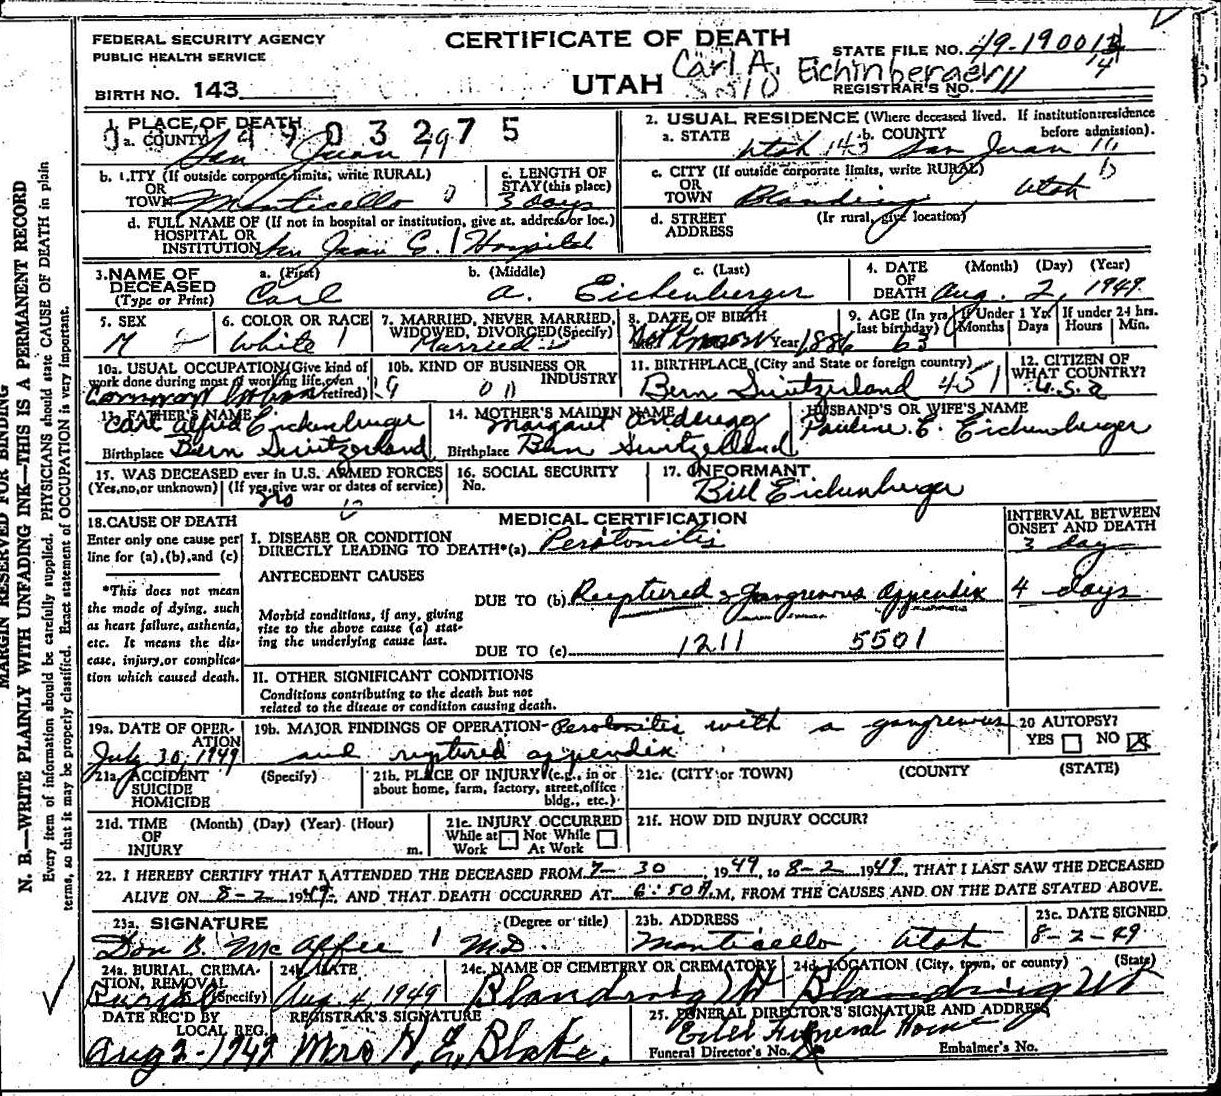 FEDERAL SECURITY AGENCY
PUBLIC HEALTH SERVICE
CERTIFICATE OF DEATH
UTAH
Carl A. Eichinberger
STATE FILE NO. 49-19001
14
REGISTRAR'S NO. 11
BIRTH NO. 143
1. PLACE OF DEATH
49 03275
a. COUNTY San Juan 19
b. CITY (If outside corporate limits, write RURAL) OR TOWN Monticello 0
c. LENGTH OF STAY (this place) 3 days
d. FULL NAME OF (If not in hospital or institution, give st. address or loc.) HOSPITAL OR INSTITUTION San Juan C. Hospital
2. USUAL RESIDENCE (Where deceased lived. If institution: residence before admission).
a. STATE Utah 143 b. COUNTY San Juan 11
c. CITY (If outside corporate limits, write RURAL) OR TOWN Blanding Utah
d. STREET ADDRESS (Ir rural, give location)
3. NAME OF DECEASED (Type or Print)
a. (First) Carl
b. (Middle) A.
c. (Last) Eichenberger
4. DATE OF DEATH (Month) (Day) (Year) Aug. 2, 1949
5. SEX M
6. COLOR OR RACE White 1
7. MARRIED, NEVER MARRIED, WIDOWED, DIVORCED (Specify) Married
8. DATE OF BIRTH Not Known Year 1886
9. AGE (In yrs. last birthday) 63
If Under 1 Yr. Months Days
If under 24 hrs. Hours Min.
10a. USUAL OCCUPATION (Give kind of work done during most of working life, even if retired)
10b. KIND OF BUSINESS OR INDUSTRY
11. BIRTHPLACE (City and State or foreign country) Bern Switzerland 451
12. CITIZEN OF WHAT COUNTRY? U.S.A
13. FATHER'S NAME Carl Alfred Eichenberger
Birthplace Bern Switzerland
14. MOTHER'S MAIDEN NAME Margaret Anderegg
Birthplace Bern Switzerland
HUSBAND'S OR WIFE'S NAME
Pauline E. Eichenberger
15. WAS DECEASED ever in U.S. ARMED FORCES
(Yes, no, or unknown) (If yes, give war or dates of service)
no
16. SOCIAL SECURITY No.
17. INFORMANT
Bill Eichenberger
18. CAUSE OF DEATH
Enter only one cause per line for (a), (b), and (c)
*This does not mean the mode of dying, such as heart failure, asthenia, etc. It means the disease, injury, or complication which caused death.
MEDICAL CERTIFICATION
INTERVAL BETWEEN ONSET AND DEATH
I. DISEASE OR CONDITION DIRECTLY LEADING TO DEATH* (a) Peritonitis
3 day
ANTECEDENT CAUSES
Morbid conditions, if any, giving rise to the above cause (a) stating the underlying cause last.
DUE TO (b) Ruptured & gangrenous appendix
4 days
DUE TO (c) 1211 5501
II. OTHER SIGNIFICANT CONDITIONS
Conditions contributing to the death but not related to the disease or condition causing death.
19a. DATE OF OPERATION July 30, 1949
19b. MAJOR FINDINGS OF OPERATION- Peritonitis with a gangrenous
and ruptured appendix
20 AUTOPSY?
YES NO
21a. ACCIDENT SUICIDE HOMICIDE (Specify)
21b. PLACE OF INJURY (e.g., in or about home, farm, factory, street, office bldg., etc.)
21c. (CITY or TOWN) (COUNTY) (STATE)
21d. TIME OF INJURY (Month) (Day) (Year) (Hour) m.
21e. INJURY OCCURRED While at Work Not While At Work
21f. HOW DID INJURY OCCUR?
22. I HEREBY CERTIFY THAT I ATTENDED THE DECEASED FROM 7-30, 1949, to 8-2 1949, THAT I LAST SAW THE DECEASED
ALIVE ON 8-2 1949, AND THAT DEATH OCCURRED AT 6:50 A.M, FROM THE CAUSES AND ON THE DATE STATED ABOVE.
23a. SIGNATURE (Degree or title)
Don B. McAffee M.D.
23b. ADDRESS
Monticello, Utah
23c. DATE SIGNED
8-2-49
24a. BURIAL, CREMATION, REMOVAL (Specify) Burial
24b. DATE Aug. 4, 1949
24c. NAME OF CEMETERY OR CREMATORY
Blanding Ut
24d. LOCATION (City, town, or county) (State)
Blanding Ut
DATE REC'D BY LOCAL REG.
Aug 2-1949
REGISTRAR'S SIGNATURE
Mrs H. E. Blake.
25. FUNERAL DIRECTOR'S SIGNATURE AND ADDRESS
Funeral Home
Funeral Director's No. Embalmer's No.
MARGIN RESERVED FOR BINDING
N. B.—WRITE PLAINLY WITH UNFADING INK—THIS IS A PERMANENT RECORD
Every item of information should be carefully supplied. PHYSICIANS should state CAUSE OF DEATH in plain
terms, so that it may be properly classified. Exact statement of OCCUPATION is very important.